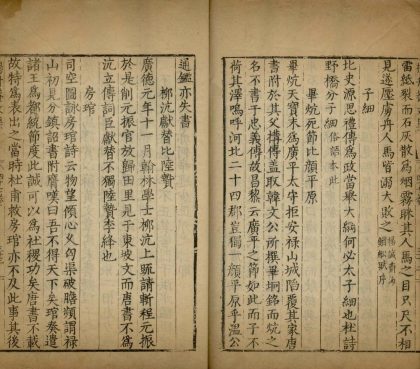 雷紙裂而石灰散為烟霧眯其人馬之目只尺不相
見遂壓虜舟人馬皆溺大敗之楊誠齋海鰌賦序
子細
比史源思禮傳為政當舉大綱何必太子細也杜詩
野橋分子細俗語本此
畢炕死節比顏平原
畢炕天寶末為廣平太守拒安祿山城陷覆其家唐
書附於其父構傳蓋取韓文公所撰畢坰銘而炕之
名不書于忠義傳故昌黎云廣平之節如此而子不
荷其澤嗚呼河北二十四郡豈獨一顏平原乎溫公
通鑑亦失書
柳沆獻替比陸贄
廣德元年十一月翰林學士柳沆上疏請斬程元振
於是削元振官放歸田里見于東坡文而唐書不為
沆立傳詞臣獻替不獨陸贄李絳也
房琯
司空圖詠房琯詩云物望傾心久匈渠破膽頻謂祿
山初見分鎮詔書附膺嘆曰吾不得天下矣琯奏遣
諸王為都統節度此誠可以為社稷功矣唐書不載
故特為表出之當時杜甫救房琯亦不及此事其後